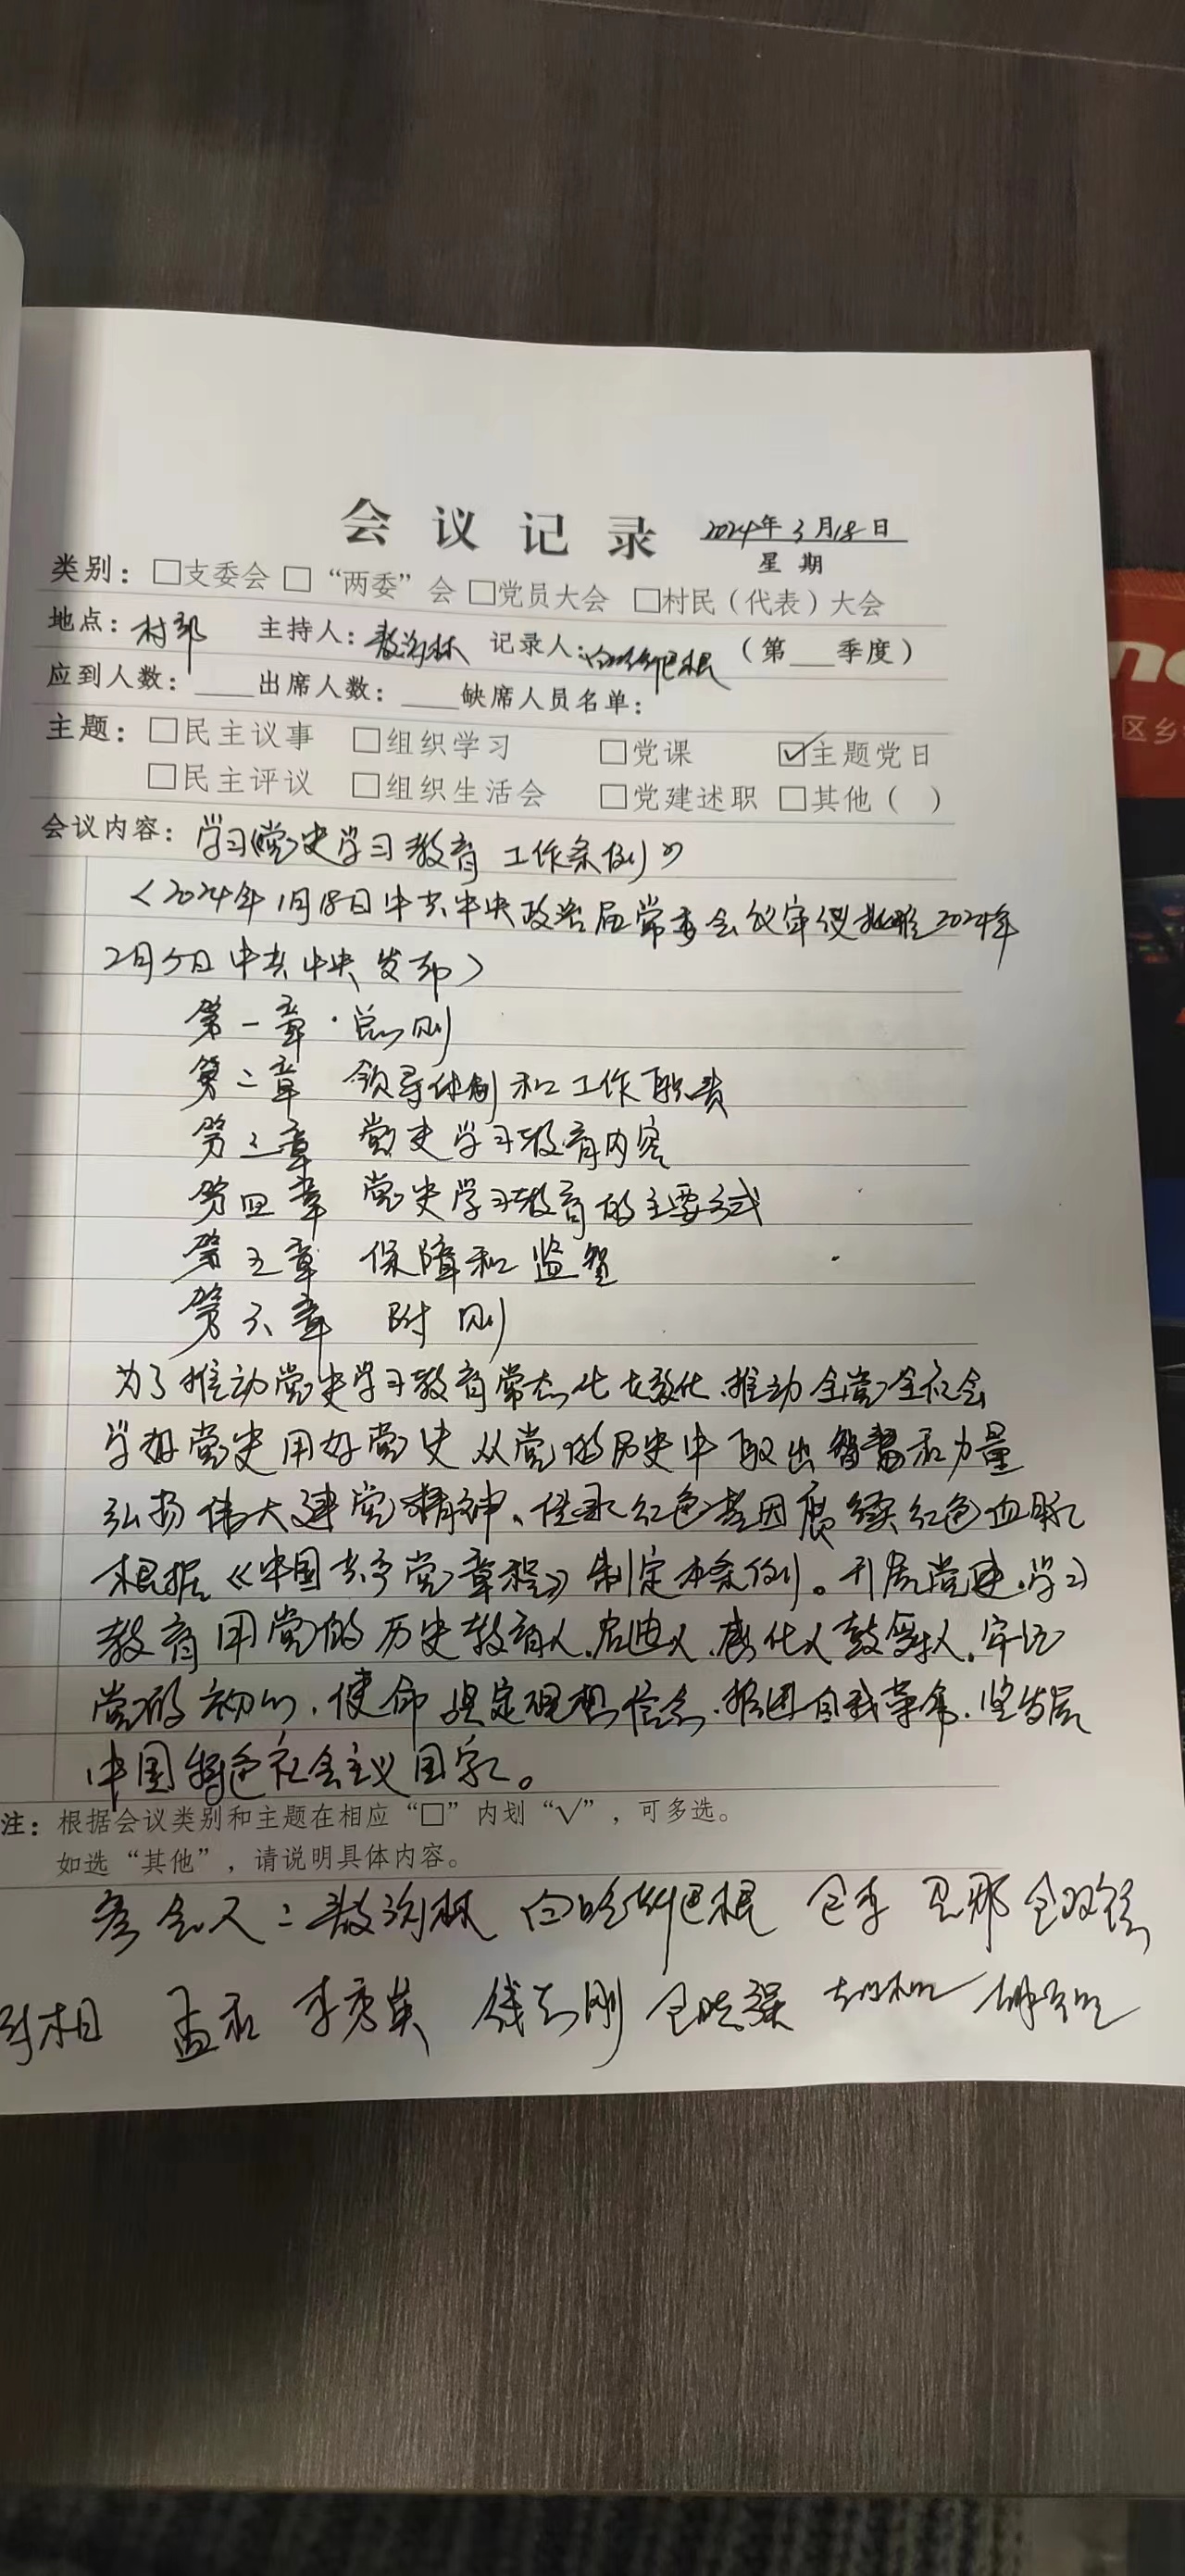 会议记录 2024年3月18日
星期
类别：□支委会 □“两委”会 □党员大会 □村民（代表）大会
地点：村部 主持人：敖海林 记录人：白哈斯巴根 （第 季度）
应到人数： 出席人数： 缺席人员名单：
主题：□民主议事 □组织学习 □党课 ☑主题党日
□民主评议 □组织生活会 □党建述职 □其他（ ）
会议内容：学习《党史学习教育工作条例》
（2024年1月18日中共中央政治局常委会议审议批准2024年
2月5日中共中央发布）
第一章·总则
第二章 领导体制和工作职责
第三章 党史学习教育内容
第四章 党史学习教育的主要方式
第五章 保障和监督
第六章 附则
为了推动党史学习教育常态化长效化、推动全党全社会
学好党史用好党史从党的历史中取出智慧和力量
弘扬伟大建党精神、传承红色基因赓续红色血脉
根据《中国共产党章程》制定本条例。开展党史学习
教育用党的历史教育人、启迪人、感化人鼓舞人。牢记
党的初心、使命坚定理想信念、推进自我革命、坚发展
中国特色社会主义国家。
注：根据会议类别和主题在相应“□”内划“√”，可多选。
如选“其他”，请说明具体内容。
参会人：敖海林 白哈斯巴根
李秀英
区乡